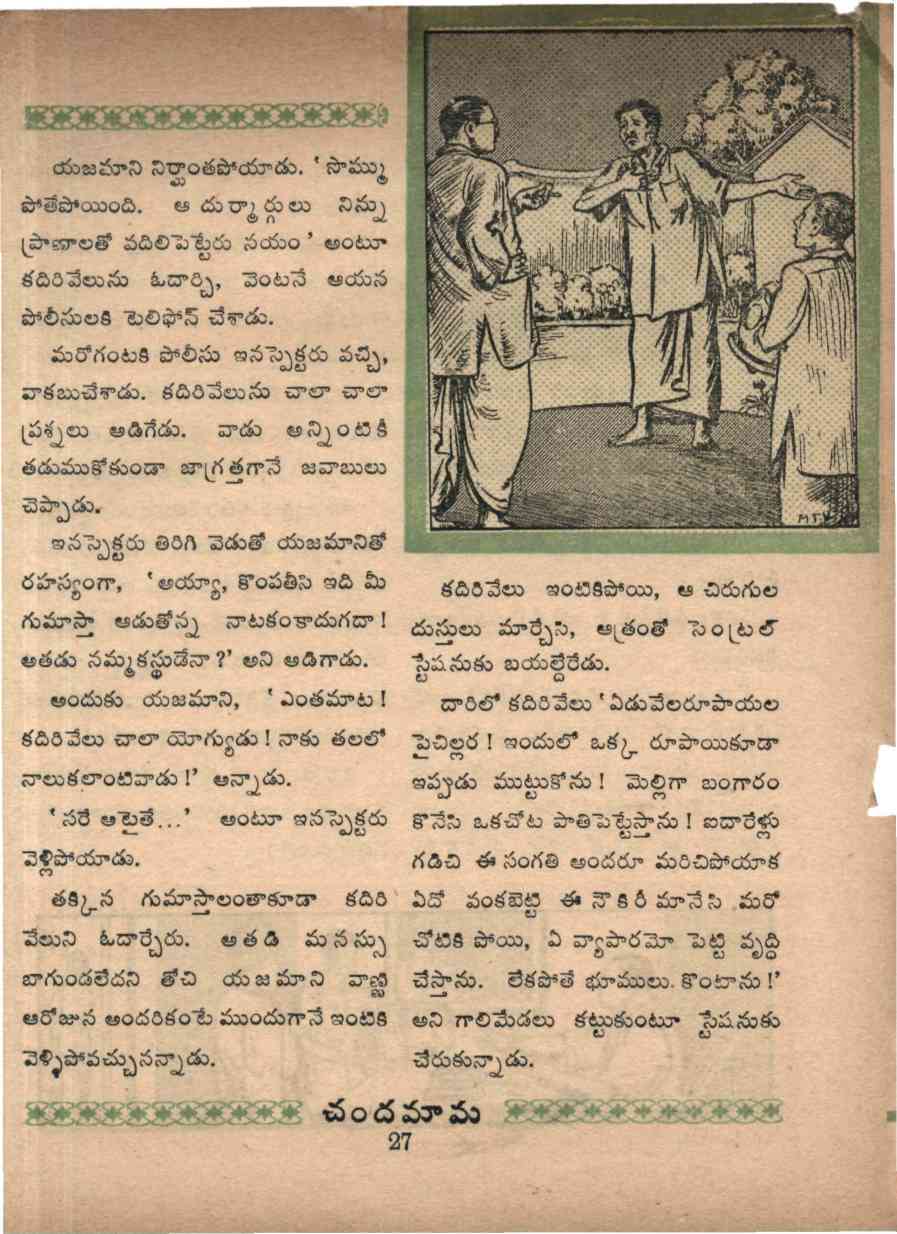 యజమాని నిర్ఘాంతపోయాడు. ' సొమ్ము
పోతేపోయింది. ఆ దుర్మార్గులు నిన్ను
ప్రాణాలతో వదిలిపెట్టేరు నయం' అంటూ
కదిరివేలును ఓదార్చి, వెంటనే ఆయన
పోలీసులకి టెలిఫోన్ చేశాడు.
మరోగంటకి పోలీసు ఇనస్పెక్టరు వచ్చి,
వాకబుచేశాడు. కదిరివేలును చాలా చాలా
ప్రశ్నలు అడిగేడు. వాడు అన్నింటికీ
తడుముకోకుండా జాగ్రత్తగానే జవాబులు
చెప్పాడు.
ఇనస్పెక్టరు తిరిగి వెడుతో యజమానితో
రహస్యంగా, ' అయ్యా, కొంపతీసి ఇది మీ
గుమాస్తా ఆడుతోన్న నాటకంకాదుగదా!
అతడు నమ్మకస్థుడేనా?' అని అడిగాడు.
అందుకు యజమాని, ' ఎంతమాట!
కదిరివేలు చాలా యోగ్యుడు! నాకు తలలో
నాలుకలాంటివాడు!' అన్నాడు.
' సరే ఆటైతే...' అంటూ ఇనస్పెక్టరు
వెళ్లిపోయాడు.
తక్కిన గుమాస్తాలంతాకూడా కదిరి
వేలుని ఓదార్చేరు. అతడి మనస్సు
బాగుండలేదని తోచి యజమాని వాణ్ణి
ఆరోజున అందరికంటే ముందుగానే ఇంటికి
వెళ్ళిపోవచ్చునన్నాడు.
MTV
కదిరివేలు ఇంటికిపోయి, ఆ చిరుగుల
దుస్తులు మార్చేసి, ఆత్రంతో సెంట్రల్
స్టేషనుకు బయల్దేరేడు.
దారిలో కదిరివేలు ' ఏడువేలరూపాయల
పైచిల్లర! ఇందులో ఒక్క రూపాయికూడా
ఇప్పుడు ముట్టుకోను! మెల్లిగా బంగారం
కొనేసి ఒకచోట పాతిపెట్టేస్తాను! ఐదారేళ్లు
గడిచి ఈ సంగతి అందరూ మరిచిపోయాక
ఏదో వంకబెట్టి ఈ నౌకిరీ మానేసి మరో
చోటికి పోయి, ఏ వ్యాపారమో పెట్టి వృద్ధి
చేస్తాను. లేకపోతే భూములు కొంటాను!'
అని గాలిమేడలు కట్టుకుంటూ స్టేషనుకు
చేరుకున్నాడు.
చందమామ
27